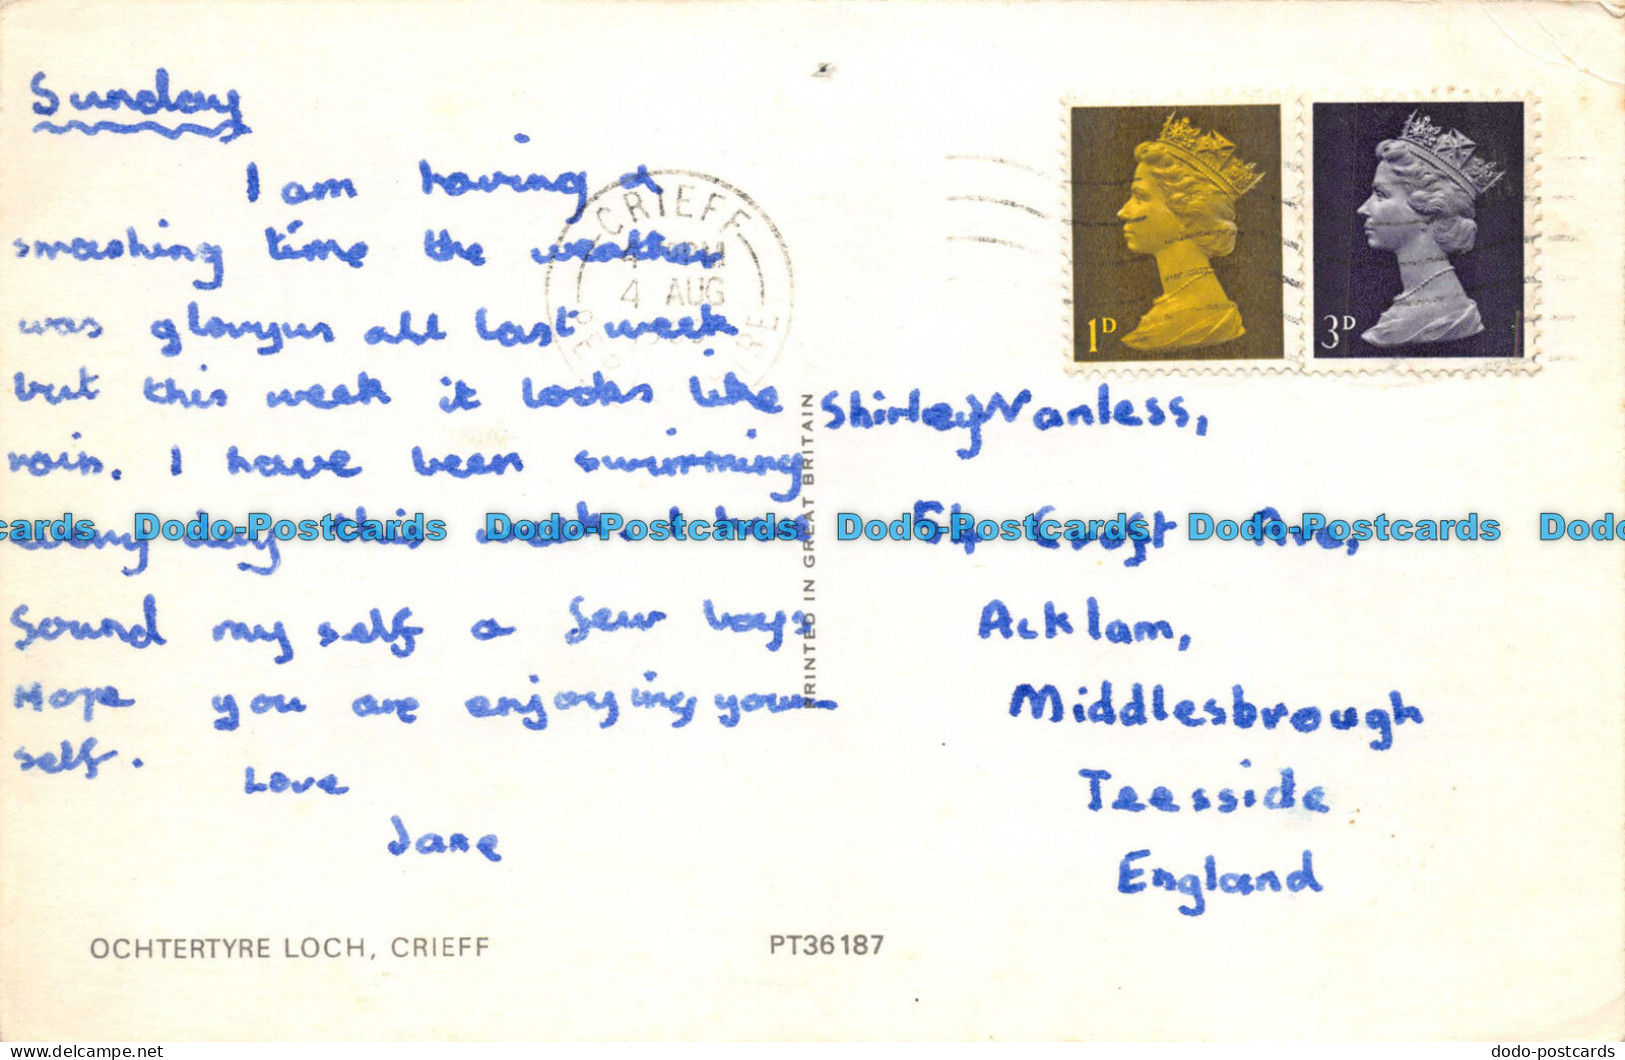 Sunday
I am having a
smashing time the weather
was gloryus all last week
but this week it looks like
rain. I have been swimming
every day this week. I have
found my self a few boys
Hope you are enjoying your
self.
Love
Jane
OCHTERTYRE LOCH, CRIEFF
PT36187
PRINTED IN GREAT BRITAIN
CRIEFF
4 AUG
1D
3D
Shirley Wanless,
54 Croft Ave,
Acklam,
Middlesbrough
Teesside
England
cards Dodo-Postcards Dodo-Postcards Dodo-Postcards Dodo-Postcards Dodo-
delcampe.net
dodo-postcards